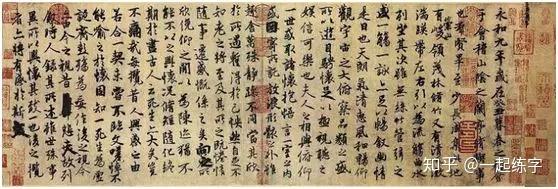 永和九年歲在癸丑暮春之初會
于會稽山陰之蘭亭脩稧事
也群賢畢至少長咸集此地
有崇山峻領茂林脩竹又有清流激
湍暎帶左右引以為流觴曲水
列坐其次雖無絲竹管弦之
盛一觴一詠亦足以暢敘幽情
是日也天朗氣清惠風和暢仰
觀宇宙之大俯察品類之盛
所以遊目騁懷足以極視聽之
娛信可樂也夫人之相與俯仰
一世或取諸懷抱悟言一室之內
或因寄所託放浪形骸之外雖
趣舍萬殊靜躁不同當其欣
於所遇蹔得於己怏然自足不
知老之將至及其所之既惓情
隨事遷感慨係之矣向之所
欣俛仰之間以為陳迹猶不
能不以之興懷況脩短隨化終
期於盡古人云死生亦大矣豈
不痛哉每攬昔人興感之由
若合一契未嘗不臨文嗟悼不
能喻之於懷固知一死生為虛
誕齊彭殤為妄作後之視今
亦由今之視昔悲夫故列
敘時人錄其所述雖世殊事
異所以興懷其致一也後之攬
者亦將有感於斯
知乎 @一起练字